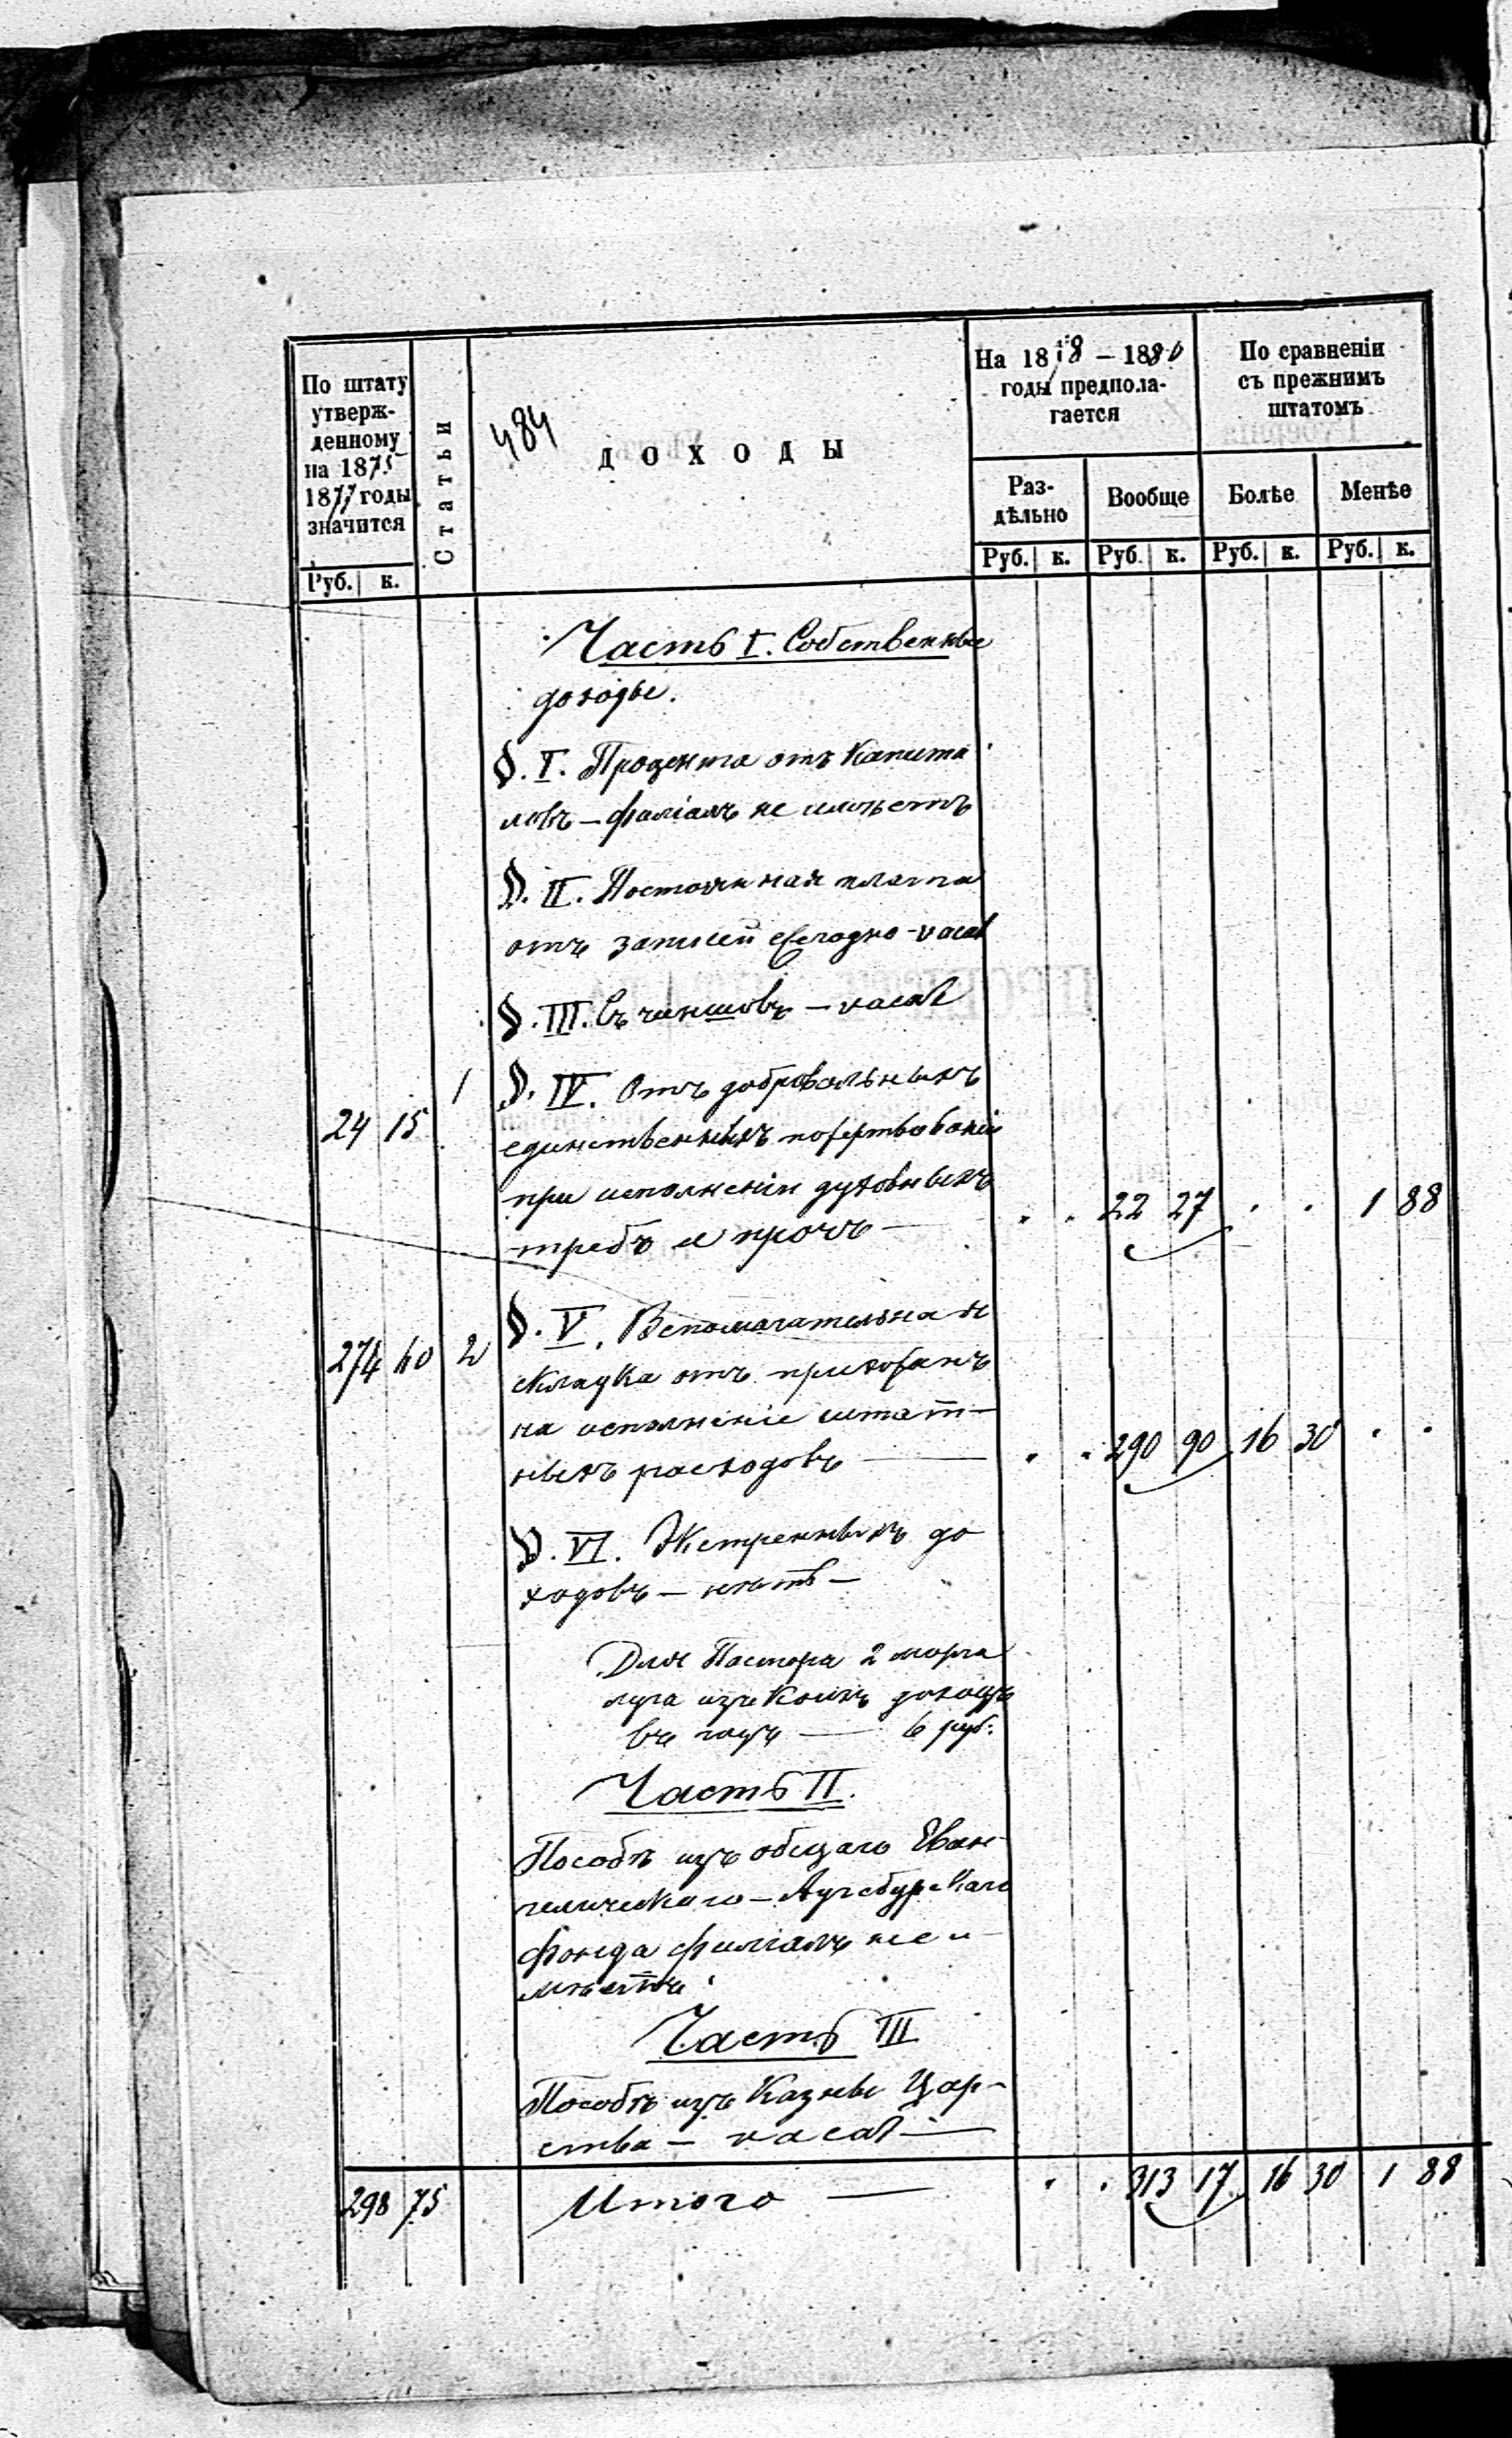 По штату
утверж-
денному
на 1875
1877 годы
значится
Руб. к.
Статьи
484
ДОХОДЫ
На 1878 – 1880
годы предпола-
гается
Раз-
дѣльно
Вообще
Руб. к. Руб. к.
По сравненіи
съ прежнимъ
штатомъ
Болѣе
Менѣе
Руб. к. Руб. к.
Часть I. Собственные
доходы.
§. I. Процента отъ Капита
ловъ – филіалъ не имѣетъ
§. II. Постоянная плата
отъ записей ежегодно – vacat
§. III. Съ чиншовъ – vacat
24 15 1 §. IV. Отъ добровольныхъ
единственныхъ пожертвованій
при исполненіи духовныхъ
требъ и проч — . . 22 27 . . 1 88
274 60 2 §. V. Вспомагательная
складка отъ прихожанъ
на исполненіе штат-
ныхъ расходовъ — . . 290 90 16 30 . .
§. VI. Экстренныхъ до
ходовъ – нѣтъ –
Для Пастора 2 морга
луга изъ коихъ доходъ
въ годъ — 6 руб.
Часть II.
Пособія изъ общаго Еван-
гелическаго – Аугсбургскаго
фонда филіалъ не и-
мѣетъ
Часть III
Пособія изъ Казны Цар-
ства – vacat —
298 75 Итого — . . 313 17 16 30 1 88